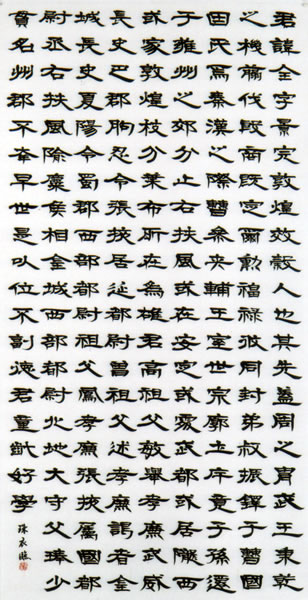 君諱全字景完敦煌效穀人也其先蓋周之武王秉乾
之機翦伐殷商既定爾勳福祿攸同封弟叔振鐸于曹國
因氏焉秦漢之際曹參夾輔王室世宗廓土斥竟子孫遷
于雍州之郊分止右扶風或在安定或處武都或居隴西
或家敦煌枝分葉布所在為雄君高祖父敏舉孝廉武威
長史巴郡朐忍令張掖居延都尉曾祖父述孝廉謁者金
城長史夏陽令蜀郡西部都尉祖父鳳孝廉張掖屬國都
尉丞右扶風隃麋侯相金城西部都尉北地大守父琫少
貫名州郡不幸早世是以位不副德君童齔好學